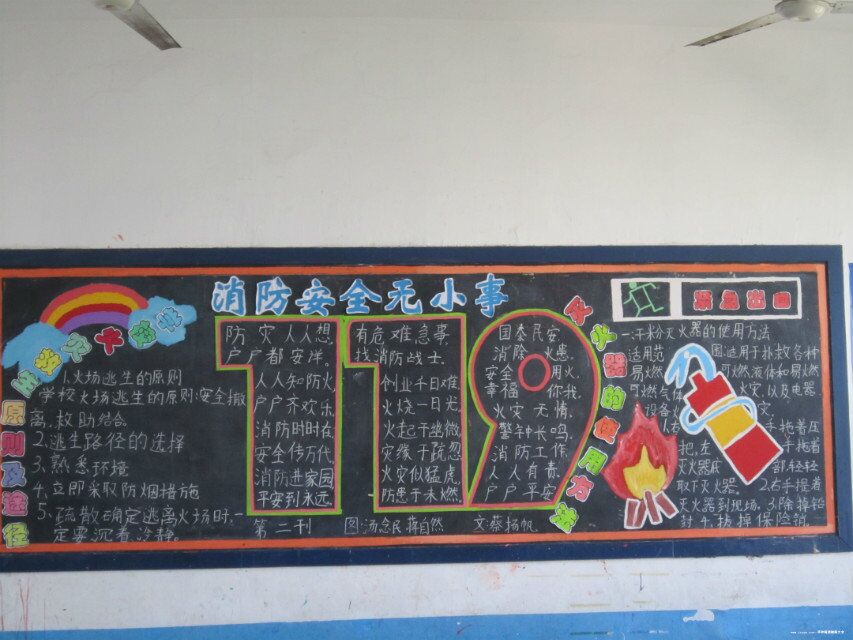 消防安全无小事
原则及途径
1.火场逃生的原则
学校火场逃生的原则:安全撤
离,救助结合.
2.逃生路径的选择
3.熟悉环接
4.立即采取防烟措施
5.疏散确定逃离火场时,一
定要沉着,冷静.
防灾人人想,
户户都安洋。
人人知防火,
户户齐欢乐.
消防时时在,
安全传万代.
消防进家园
平安到永远.
有危难急事
找消防战士.
创业千日难,
火烧一日光,
火起于幽微,
灾缘于疏忽
火灾似猛虎,
防患于未燃.
国泰民安,
消除火患,
安全用火,
幸福你我,
火灾无情,
警钟长鸣,
消防工作,
人人有责,
户户平安
第二刊 图:汤念民蒋自然 文:蔡扬帆
灭火器的使用方法
紧急出口
一.干粉灭火器的使用方法
适用范围:适用于扑救各种
易燃可燃液体和易燃
可燃气体火灾,以及电器
设备火
手拖着压
把,左手拖着
灭火器底部,轻轻
取下灭火器。2.右手提着
灭火器到现场.3.除掉铅
封4.拔掉保险销.